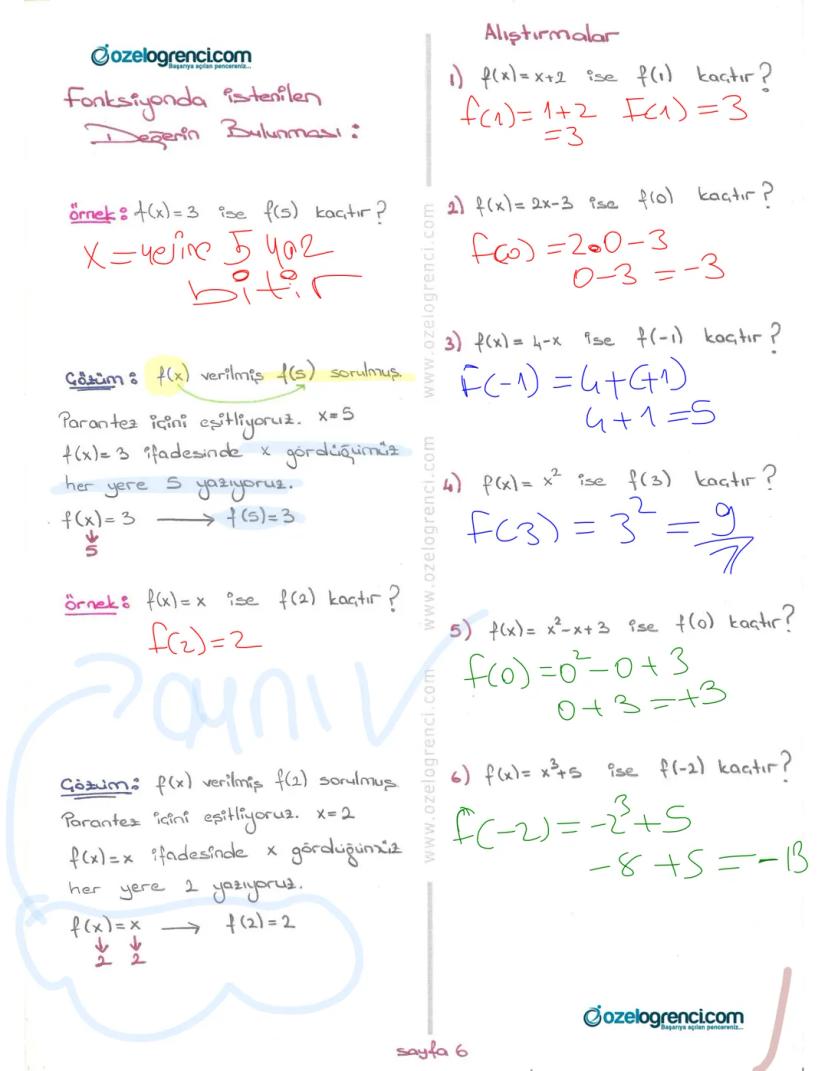 ozelogrenci.com
Başarıya açılan pencereniz...
Fonksiyonda istenilen
Değerin Bulunması:
örnek: f(x)=3 ise f(5) kaçtır?
x=yerine 5 yaz
bitir
Çözüm: f(x) verilmiş f(5) sorulmuş.
Parantez içini eşitliyoruz. x=5
f(x)=3 ifadesinde x gördüğümüz
her yere 5 yazıyoruz.
f(x)=3 → f(5)=3
↓
5
örnek: f(x)=x ise f(2) kaçtır?
f(2)=2
aynı
Çözüm: f(x) verilmiş f(2) sorulmuş
Parantez içini eşitliyoruz. x=2
f(x)=x ifadesinde x gördüğümüz
her yere 2 yazıyoruz.
f(x)=x → f(2)=2
↓ ↓
2 2
www.ozelogrenci.com www.ozelogrenci.com www.ozelogrenci.com
Alıştırmalar
1) f(x)=x+2 ise f(1) kaçtır?
f(1)=1+2 F(1)=3
=3
2) f(x)=2x-3 ise f(0) kaçtır?
f(0)=2.0-3
0-3=-3
3) f(x)=4-x ise f(-1) kaçtır?
F(-1)=4+(+1)
4+1=5
4) f(x)=x² ise f(3) kaçtır?
f(3)=3²=9
5) f(x)=x²-x+3 ise f(0) kaçtır?
f(0)=0²-0+3
0+3=+3
6) f(x)=x³+5 ise f(-2) kaçtır?
f(-2)=-2³+5
-8+5=-13
ozelogrenci.com
Başarıya açılan pencereniz...
sayfa 6